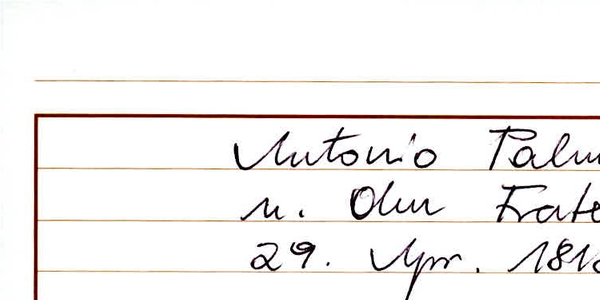 Antonio Palm
n. Olm Frate
29. Apr. 181